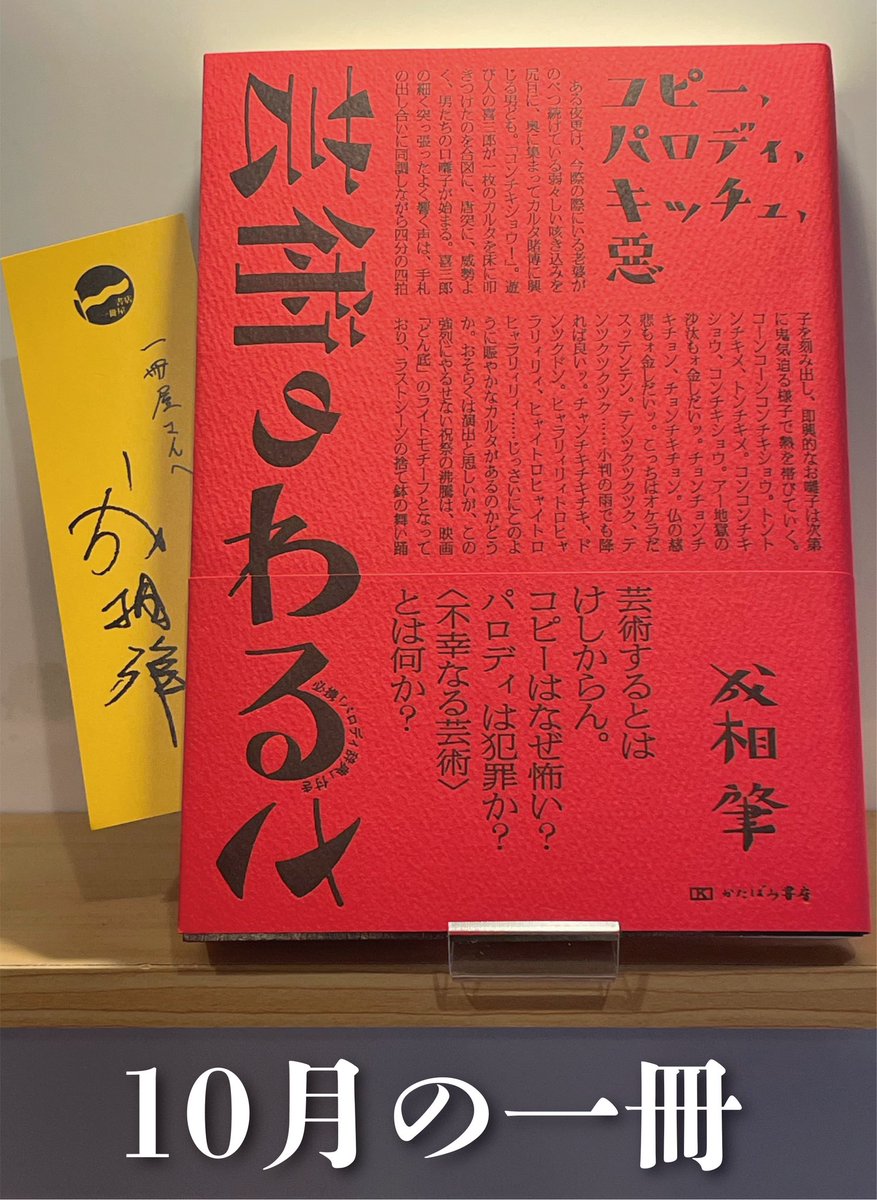 コピー,
パロディ,
キッチュ,
悪
ある夜更け、今際の際にいる老婆が
のべつ続けている弱々しい咳き込みを
尻目に、奥に集まってカルタ賭博に興
じる男ども。「コンチキショウ！」。遊
び人の喜三郎が一枚のカルタを床に叩
きつけたのを合図に、唐突に、威勢よ
く、男たちの口囃子が始まる。喜三郎
の細く突っ張ったよく響く声は、手札
の出し合いに同調しながら四分の四拍
子を刻み出し、即興的なお囃子は次第
に鬼気迫る様子で熱を帯びていく。
コーンコーンコンチキショウ。トント
ンチキメ、トンチキメ。コンコンチキ
ショウ、コンチキショウ。アー地獄の
沙汰もォ金しだいッ。チョンチョンチ
キチョン、チョンチキチョン。仏の慈
悲もォ金しだいッ。こっちはオケラだ
スッテンテン。テンツクツクツク、テ
ンツクツクツク……小判の雨でも降
れば良いッ。チャンチキチキチキ、ド
ンツックドン。ヒャラリィリィトロヒャ
ラリィリィ、ヒャイトロヒャイトロ
ヒャラリィリィ……じっさいにこのよ
うに賑やかなカルタがあるのかどう
か。おそらくは演出と思しいが、この
強烈にやるせない祝祭の沸騰は、映画
『どん底』のライトモチーフとなって
おり、ラストシーンの捨て鉢の舞い踊
芸術のわるさ
必携「パロディ辞典」付き
成相 肇
芸術するとは
けしからん。
コピーはなぜ怖い？
パロディは犯罪か？
〈不幸なる芸術〉
とは何か？
K かたばみ書房
書店
一冊屋
一冊屋さんへ
成相肇
10月の一冊